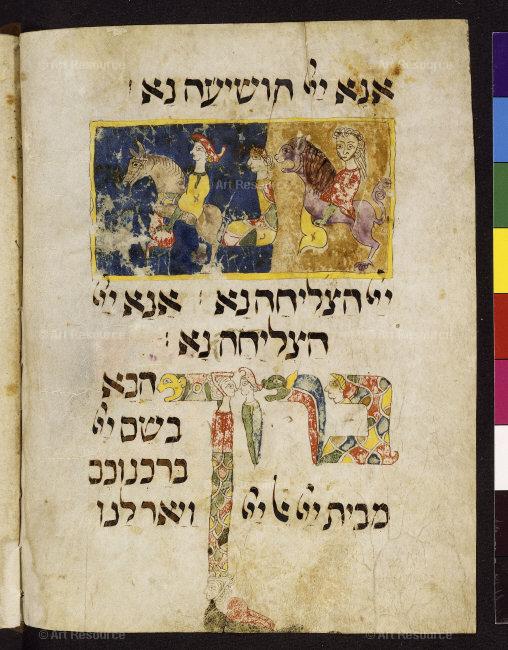 אנא יי הושיעה נא :
יי הצליחה נא : אנא יי
הצליחה נא :
ברוך הבא
בשם יי
ברכנוכם
מבית יי אל יי ויאר לנו
© Art Resource
© Art Resource
© Art Resource
© Art Resource
© Art Resource
© Art Resource